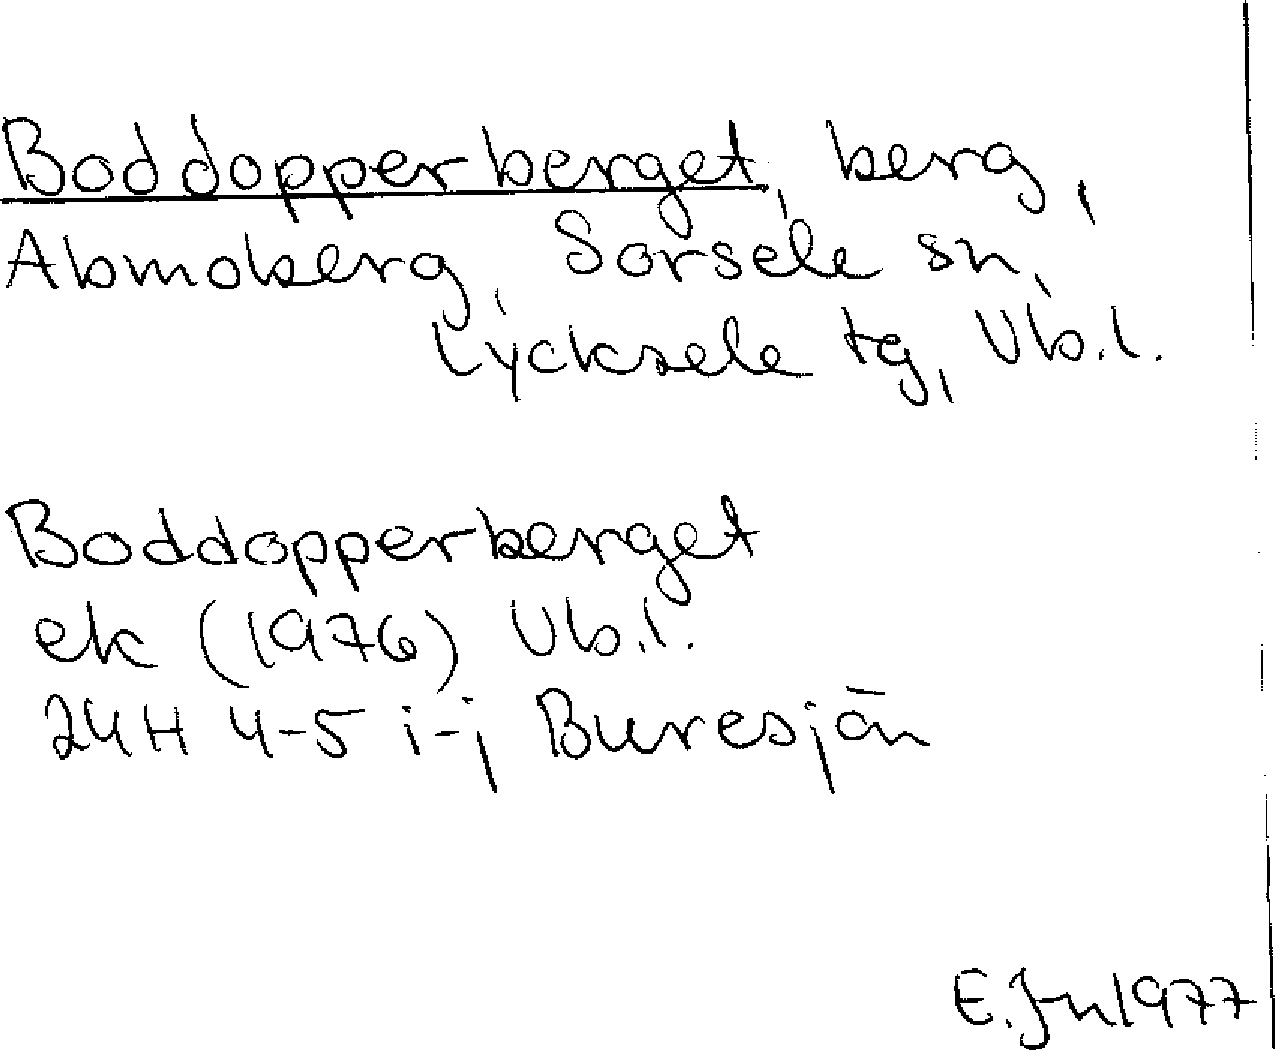 Boddopperberget, berg,
Abmoberg, Sorsele sn,
Lycksele tg, Vb.l.
Boddopperberget
ek (1976) Vb.l.
24H 4-5 i-j Buresjön
E. Jn 1977